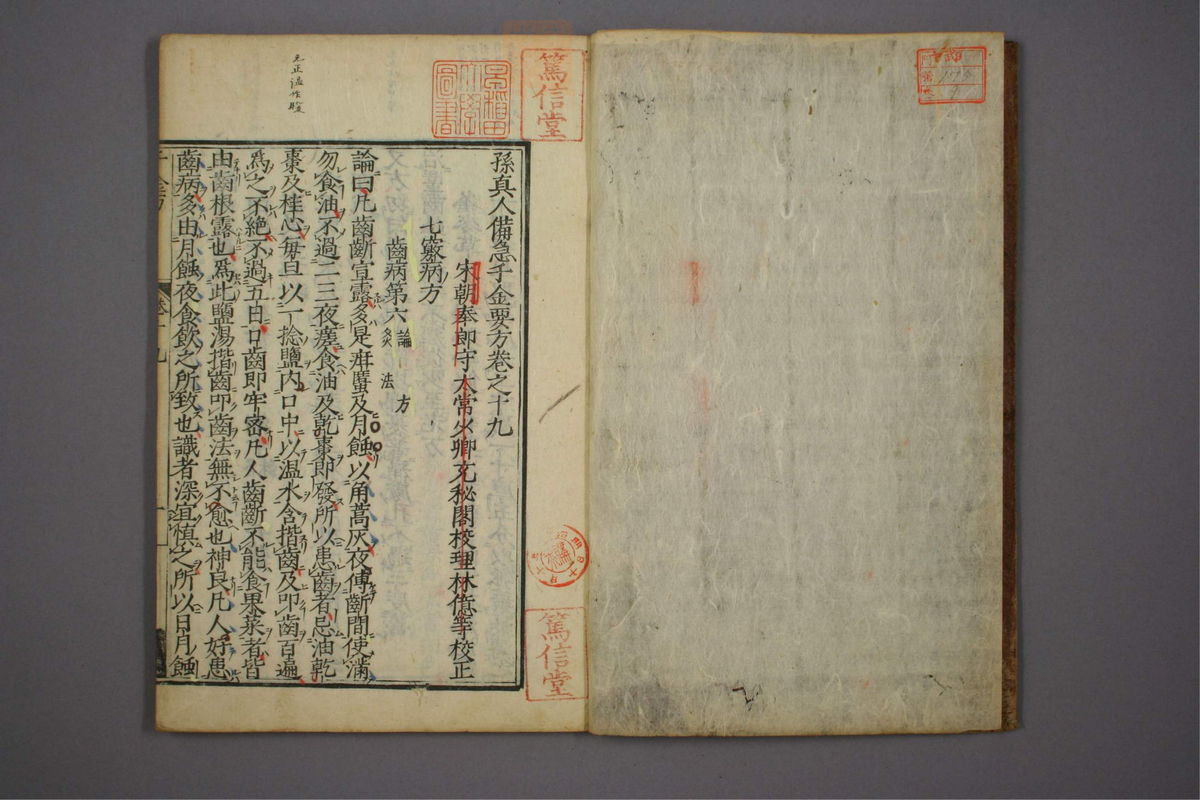 孫真人備急千金要方卷之十九
宋朝奉郎守太常少卿充秘閣校理林億等校正
七竅病方
齒病第六 論一 方
灸法
論曰凡齒齗宣露多是疳䘌及月蝕以角蒿灰夜傅齗間使滿
勿食油不過二三夜瘥食油及乾棗即發所以患齒者忌油乾
棗及桂心每旦以一捻鹽内口中以温水含揩齒及叩齒百遍
爲之不絶不過五日口齒即牢密凡人齒齗不能食果菜者皆
由齒根露也爲此鹽湯揩齒叩齒法無不愈也神良凡人好患
齒病多由月蝕夜食飲之所致也識者深宜慎之所以日月蝕
卷十九
元正温作煖
篤信堂
早稲田大學圖書
篤信堂